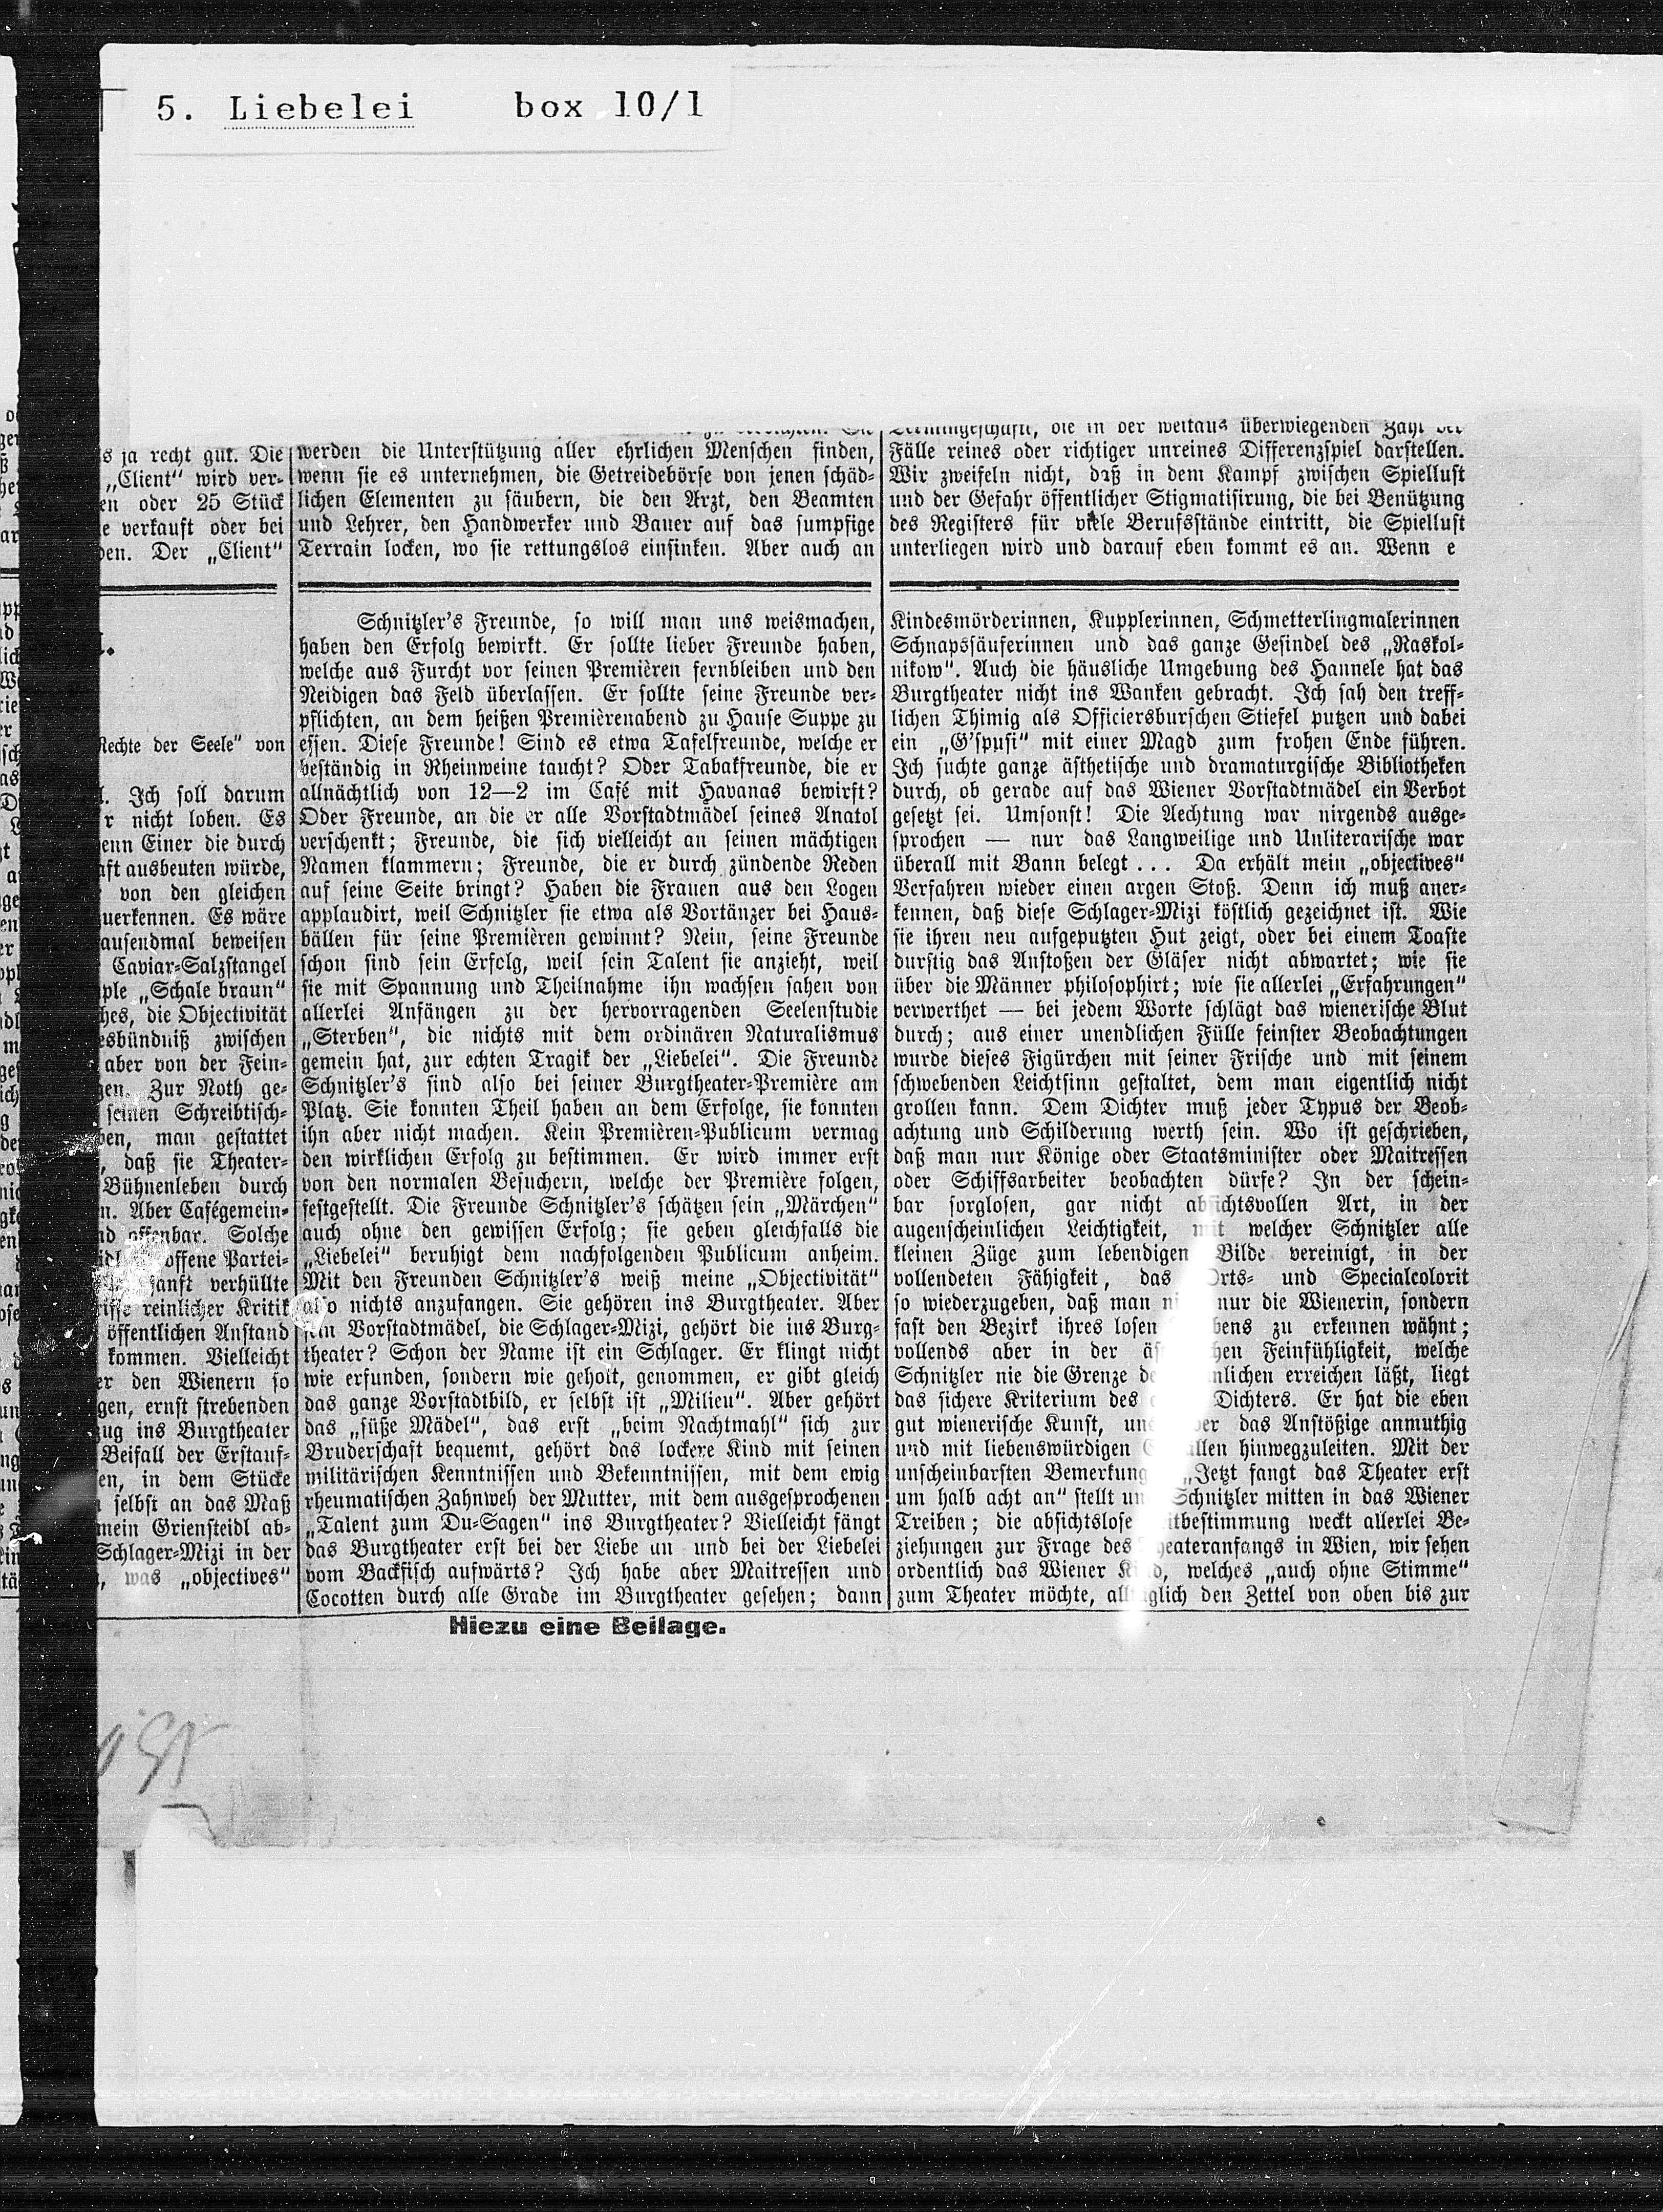 5. Liebelei box 10/1
s ja recht gut. Die
„Client“ wird ver-
en oder 25 Stück
e verkauft oder bei
en. Der „Client“
werden die Unterstützung aller ehrlichen Menschen finden,
wenn sie es unternehmen, die Getreidebörse von jenen schäd-
lichen Elementen zu säubern, die den Arzt, den Beamten
und Lehrer, den Handwerker und Bauer auf das sumpfige
Terrain locken, wo sie rettungslos einsinken. Aber auch an
die in der weitaus überwiegenden Zahl der
Fälle reines oder richtiger unreines Differenzspiel darstellen.
Wir zweifeln nicht, daß in dem Kampf zwischen Spiellust
und der Gefahr öffentlicher Stigmatisirung, die bei Benützung
des Registers für viele Berufsstände eintritt, die Spiellust
unterliegen wird und darauf eben kommt es an. Wenn e
Rechte der Seele“ von
Ich soll darum
r nicht loben. Es
enn Einer die durch
aft ausbeuten würde,
von den gleichen
uerkennen. Es wäre
ausendmal beweisen
Caviar-Salzstangel
ple „Schale braun“
hes, die Objectivität
esbündniß zwischen
aber von der Fein-
gen. Zur Noth ge-
seinen Schreibtisch-
ben, man gestattet
, daß sie Theater-
Bühnenleben durch
n. Aber Cafégemein-
nd offenbar. Solche
offene Partei-
sanft verhüllte
riffe reinlicher Kritik
öffentlichen Anstand
kommen. Vielleicht
er den Wienern so
gen, ernst strebenden
zug ins Burgtheater
Beifall der Erstauf-
en, in dem Stücke
selbst an das Maß
mein Griensteidl ab-
Schlager-Mizi in der
, was „objectives“
Schnitzler's Freunde, so will man uns weismachen,
haben den Erfolg bewirkt. Er sollte lieber Freunde haben,
welche aus Furcht vor seinen Premièren fernbleiben und den
Neidigen das Feld überlassen. Er sollte seine Freunde ver-
pflichten, an dem heißen Premièrenabend zu Hause Suppe zu
essen. Diese Freunde! Sind es etwa Tafelfreunde, welche er
beständig in Rheinweine taucht? Oder Tabakfreunde, die er
allnächtlich von 12—2 im Café mit Havanas bewirft?
Oder Freunde, an die er alle Vorstadtmädel seines Anatol
verschenkt; Freunde, die sich vielleicht an seinen mächtigen
Namen klammern; Freunde, die er durch zündende Reden
auf seine Seite bringt? Haben die Frauen aus den Logen
applaudirt, weil Schnitzler sie etwa als Vortänzer bei Haus-
bällen für seine Premièren gewinnt? Nein, seine Freunde
schon sind sein Erfolg, weil sein Talent sie anzieht, weil
sie mit Spannung und Theilnahme ihn wachsen sahen von
allerlei Anfängen zu der hervorragenden Seelenstudie
„Sterben“, die nichts mit dem ordinären Naturalismus
gemein hat, zur echten Tragik der „Liebelei“. Die Freunde
Schnitzler's sind also bei seiner Burgtheater-Première am
Platz. Sie konnten Theil haben an dem Erfolge, sie konnten
ihn aber nicht machen. Kein Premièren-Publicum vermag
den wirklichen Erfolg zu bestimmen. Er wird immer erst
von den normalen Besuchern, welche der Première folgen,
festgestellt. Die Freunde Schnitzler's schätzen sein „Märchen“
auch ohne den gewissen Erfolg; sie geben gleichfalls die
„Liebelei“ beruhigt dem nachfolgenden Publicum anheim.
Mit den Freunden Schnitzler's weiß meine „Objectivität“
also nichts anzufangen. Sie gehören ins Burgtheater. Aber
sein Vorstadtmädel, die Schlager-Mizi, gehört die ins Burg-
theater? Schon der Name ist ein Schlager. Er klingt nicht
wie erfunden, sondern wie geholt, genommen, er gibt gleich
das ganze Vorstadtbild, er selbst ist „Milieu“. Aber gehört
das „süße Mädel“, das erst „beim Nachtmahl“ sich zur
Bruderschaft bequemt, gehört das lockere Kind mit seinen
militärischen Kenntnissen und Bekenntnissen, mit dem ewig
rheumatischen Zahnweh der Mutter, mit dem ausgesprochenen
„Talent zum Du-Sagen“ ins Burgtheater? Vielleicht fängt
das Burgtheater erst bei der Liebe an und bei der Liebelei
vom Backfisch aufwärts? Ich habe aber Maitressen und
Cocotten durch alle Grade im Burgtheater gesehen; dann
Kindesmörderinnen, Kupplerinnen, Schmetterlingmalerinnen
Schnapssäuferinnen und das ganze Gesindel des „Raskol-
nikow“. Auch die häusliche Umgebung des Hannele hat das
Burgtheater nicht ins Wanken gebracht. Ich sah den treff-
lichen Thimig als Officiersburschen Stiefel putzen und dabei
ein „G'spusi“ mit einer Magd zum frohen Ende führen.
Ich suchte ganze ästhetische und dramaturgische Bibliotheken
durch, ob gerade auf das Wiener Vorstadtmädel ein Verbot
gesetzt sei. Umsonst! Die Aechtung war nirgends ausge-
sprochen — nur das Langweilige und Unliterarische war
überall mit Bann belegt... Da erhält mein „objectives“
Verfahren wieder einen argen Stoß. Denn ich muß aner-
kennen, daß diese Schlager-Mizi köstlich gezeichnet ist. Wie
sie ihren neu aufgeputzten Hut zeigt, oder bei einem Toaste
durstig das Anstoßen der Gläser nicht abwartet; wie sie
über die Männer philosophirt; wie sie allerlei „Erfahrungen“
verwerthet — bei jedem Worte schlägt das wienerische Blut
durch; aus einer unendlichen Fülle feinster Beobachtungen
wurde dieses Figürchen mit seiner Frische und mit seinem
schwebenden Leichtsinn gestaltet, dem man eigentlich nicht
grollen kann. Dem Dichter muß jeder Typus der Beob-
achtung und Schilderung werth sein. Wo ist geschrieben,
daß man nur Könige oder Staatsminister oder Maitressen
oder Schiffsarbeiter beobachten dürfe? In der schein-
bar sorglosen, gar nicht absichtsvollen Art, in der
augenscheinlichen Leichtigkeit, mit welcher Schnitzler alle
kleinen Züge zum lebendigen Bilde vereinigt, in der
vollendeten Fähigkeit, das Orts- und Specialcolorit
so wiederzugeben, daß man ni nur die Wienerin, sondern
fast den Bezirk ihres losen bens zu erkennen wähnt;
vollends aber in der äs hen Feinfühligkeit, welche
Schnitzler nie die Grenze de nlichen erreichen läßt, liegt
das sichere Kriterium des Dichters. Er hat die eben
gut wienerische Kunst, uns er das Anstößige anmuthig
und mit liebenswürdigen allen hinwegzuleiten. Mit der
unscheinbarsten Bemerkung „Jetzt fangt das Theater erst
um halb acht an“ stellt un Schnitzler mitten in das Wiener
Treiben; die absichtslose itbestimmung weckt allerlei Be-
ziehungen zur Frage des Theateranfangs in Wien, wir sehen
ordentlich das Wiener Kind, welches „auch ohne Stimme“
zum Theater möchte, alltäglich den Zettel von oben bis zur
Hiezu eine Beilage.